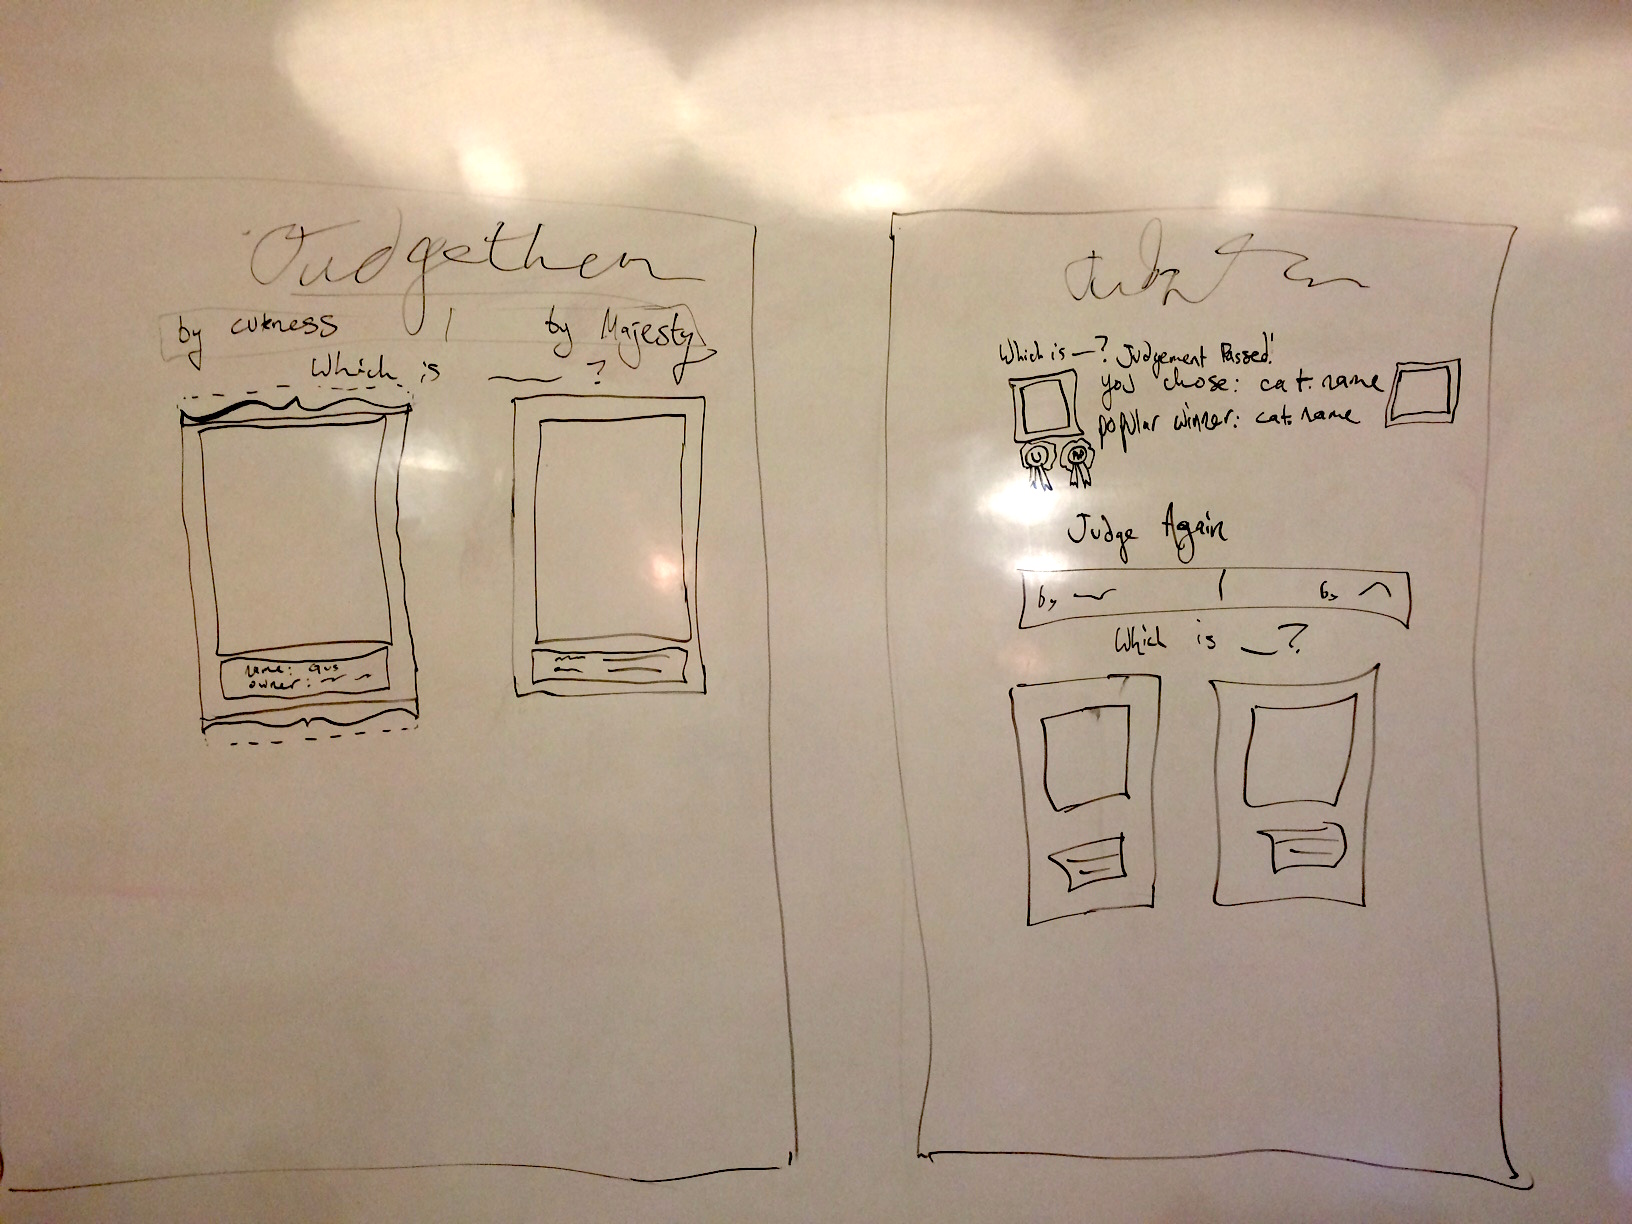 Judgethem
by cuteness | by Majesty
Which is ___ ?
name: Gus
owner:
Which is __? Judgement Passed!
you chose: cat.name
popular winner: cat.name
U
Judge Again
by | by
Which is __?